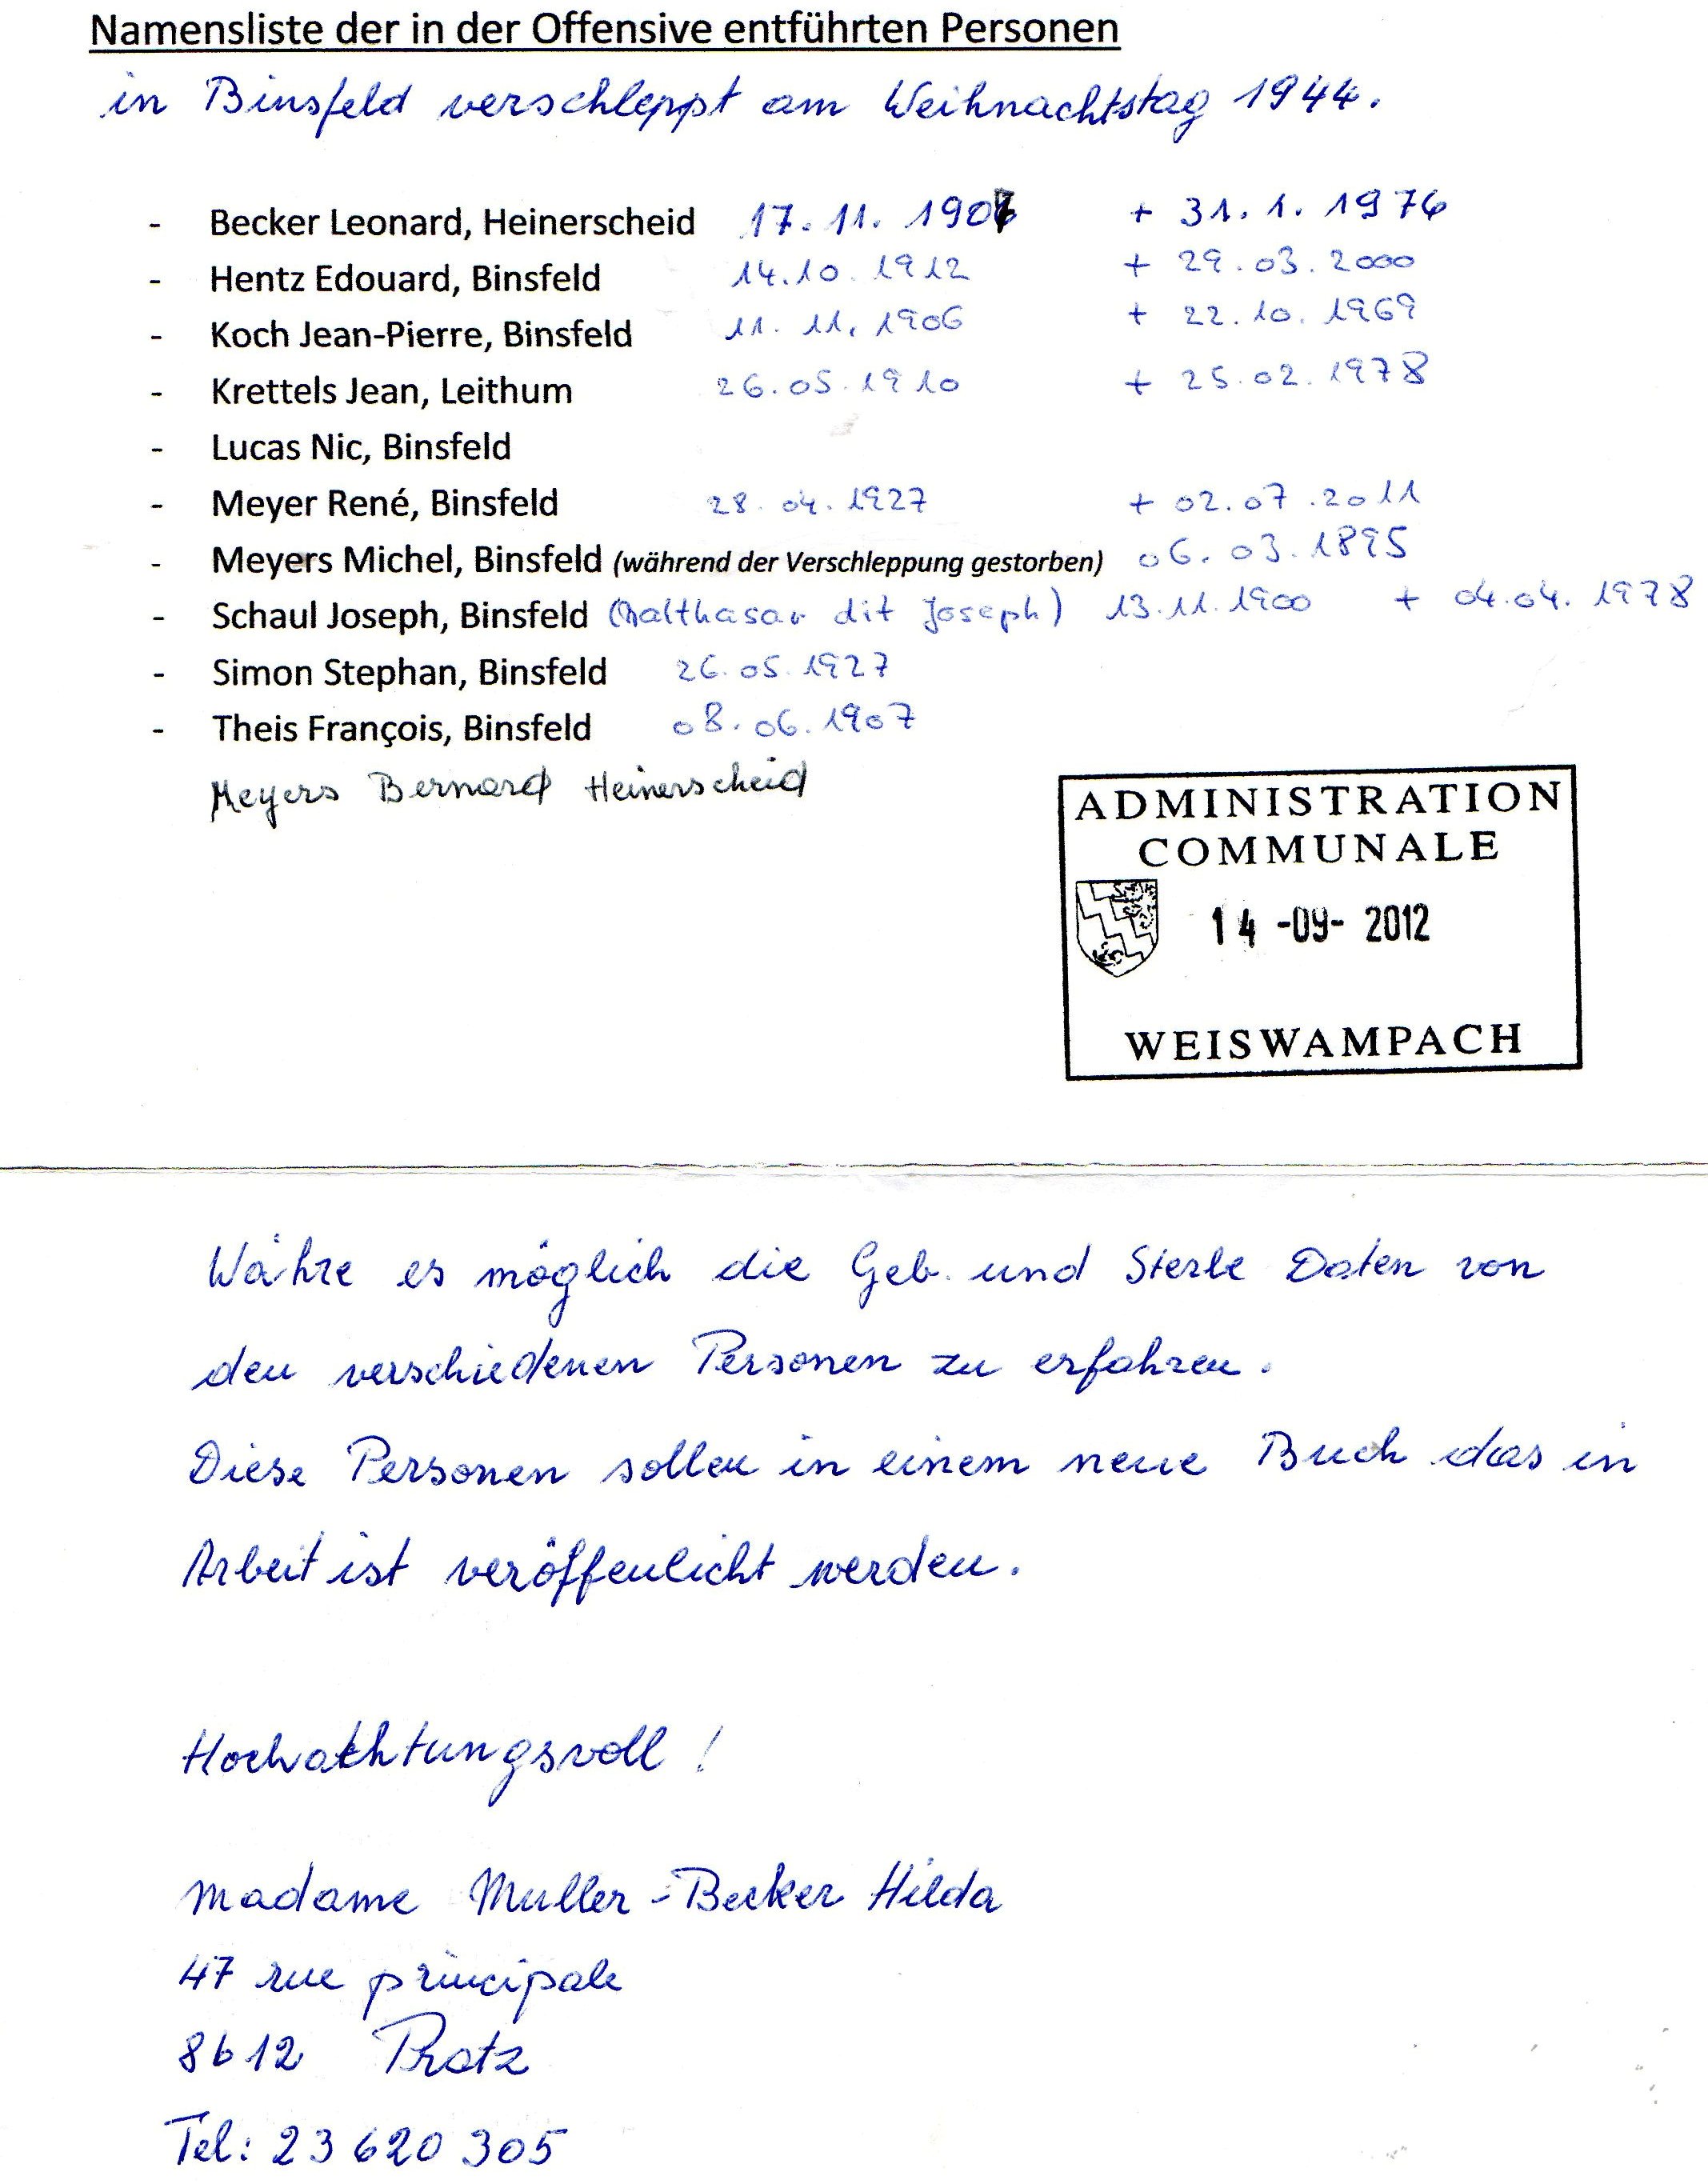 Namensliste der in der Offensive entführten Personen
in Binsfeld verschleppt am Weihnachtstag 1944.
- Becker Leonard, Heinerscheid 17.11.1907 + 31.1.1976
- Hentz Edouard, Binsfeld 14.10.1912 + 29.03.2000
- Koch Jean-Pierre, Binsfeld 11.11.1906 + 22.10.1969
- Krettels Jean, Leithum 26.05.1910 + 25.02.1978
- Lucas Nic, Binsfeld
- Meyer René, Binsfeld 28.04.1927 + 02.07.2011
- Meyers Michel, Binsfeld (während der Verschleppung gestorben) 06.03.1895
- Schaul Joseph, Binsfeld (Balthasar dit Joseph) 13.11.1900 + 04.04.1978
- Simon Stephan, Binsfeld 26.05.1927
- Theis François, Binsfeld 08.06.1907
Meyers Bernard Heinerscheid
ADMINISTRATION
COMMUNALE
14 -09- 2012
WEISWAMPACH
Währe es möglich die Geb. und Sterbe Daten von
den verschiedenen Personen zu erfahren.
Diese Personen sollen in einem neue Buch das in
Arbeit ist veröffenlicht werden.
Hochachtungsvoll !
Madame Muller-Becker Hilda
47 rue principale
8612 Pratz
Tel: 23 620 305